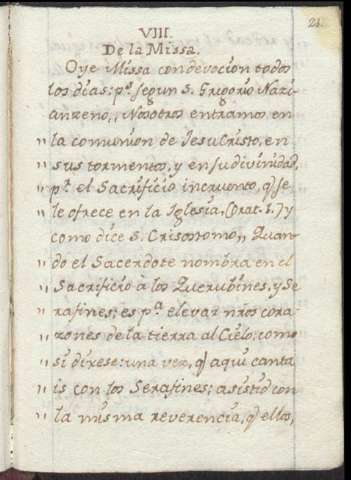 21.
VIII.
De la Missa.
Oye Missa con devocion todos
los dias: pq̃. segun S. Grigorio Nazi-
anzeno,, Nosotros entramos en
,, la comunion de Jesu Cristo, en
,, sus tormentos, y en su divinidad,
,, pr. el Sacrificio incruento, q̃ se
,, le ofrece en la Iglesia, (Orat. 1.) y
como dice S. Crisostomo,, Quan-
,, do el Sacerdote nombra en el
,, Sacrificio à los Querubines, y Se-
,, rafines; es pa. elevar nros cora-
,, zones de la tierra al Cielo, como
,, si dixese: una vez, q̃ aqui canta-
,, is con los Serafines; asistid con
,, la misma reverencia, q̃ ellos,